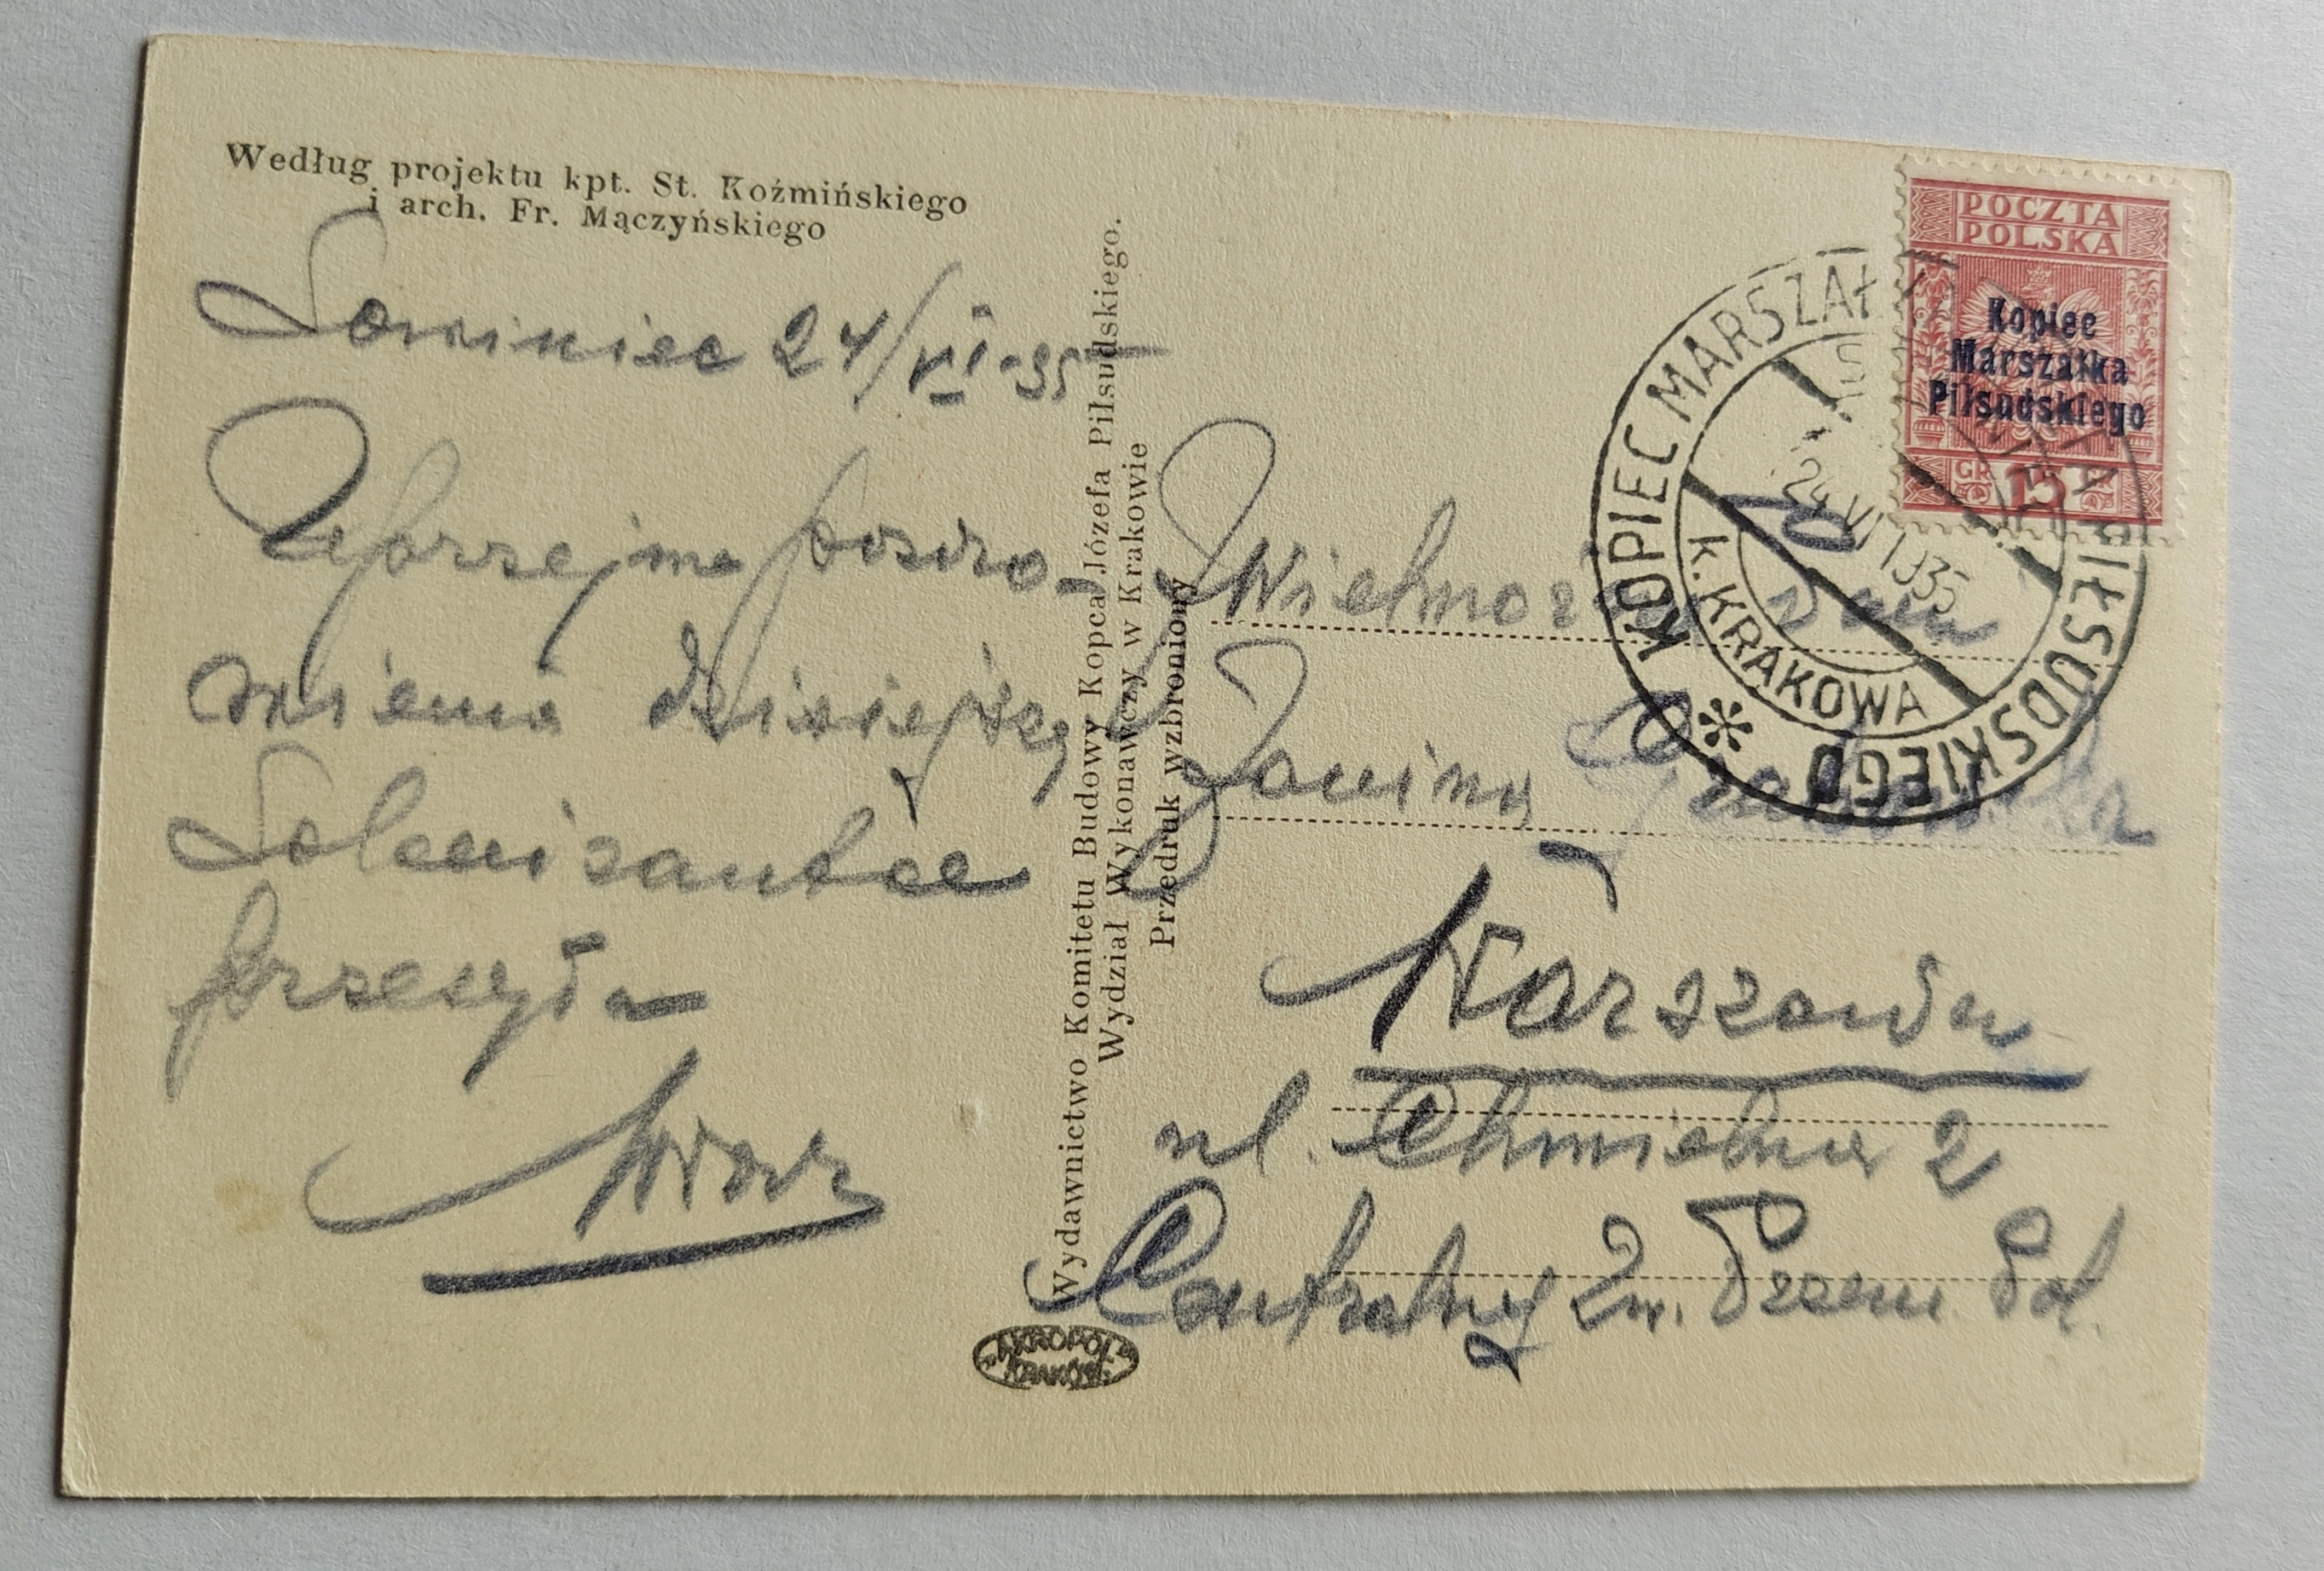 Według projektu kpt. St. Koźmińskiego
i arch. Fr. Mączyńskiego
Sowiniec 24/VI-35
Uprzejme pozdro-
wienia dzisiejszej
Solenizantce
przesyła
Wydawnictwo Komitetu Budowy Kopca Józefa Piłsudskiego.
Wydział Wykonawczy w Krakowie
Przedruk wzbroniony
"AKROPOL"
KRAKÓW
POCZTA
POLSKA
Kopiec
Marszałka
Piłsudskiego
GR 15
KOPIEC MARSZAŁKA PIŁSUDSKIEGO
24 VI 1935
k. KRAKOWA
Wielmożna Pani
Janina
Warszawa
ul. Chmielna 2
Centralny Zw. Przem. Pol.